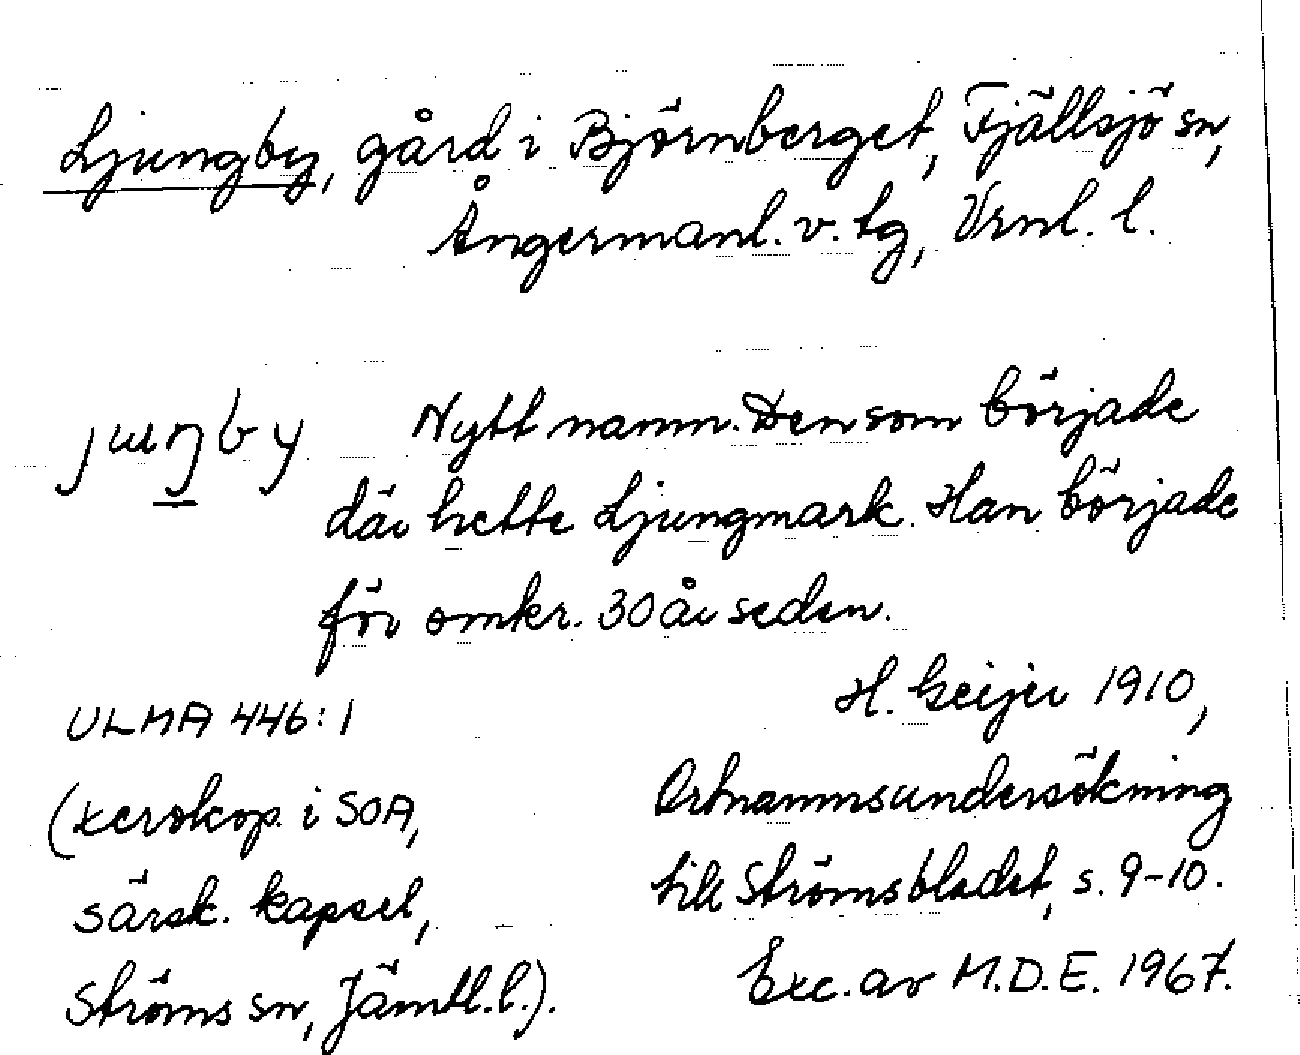 Ljungby, gård i Björnberget, Fjällsjö sn,
Ångermanl. v. tg, Vrnl. l.
juŋby Nytt namn. Den som började
där hette Ljungmark. Han började
för omkr. 30 år sedan.
H. Geijer 1910,
ULMA 446:1
Ortnamnsundersökning
(xerokop. i SOA,
till Strömsbladet, s. 9-10.
särsk. kapsel,
Exc. av M.D.E. 1967.
Ströms sn, Jämtl. l.).